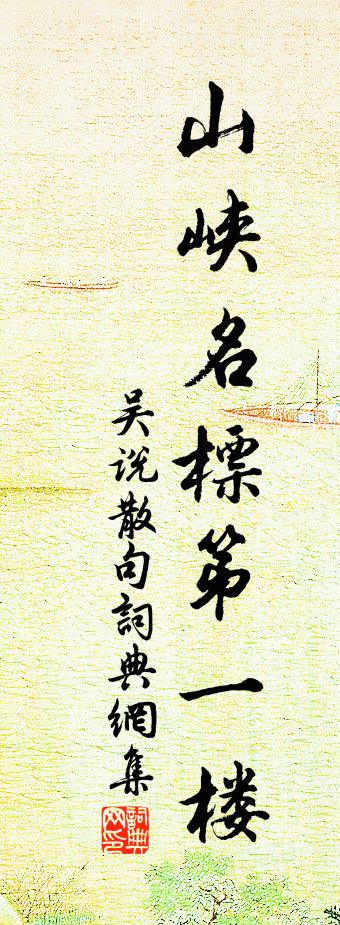 山峡名標第一楼
吴说散句詞典網集
詞典网印